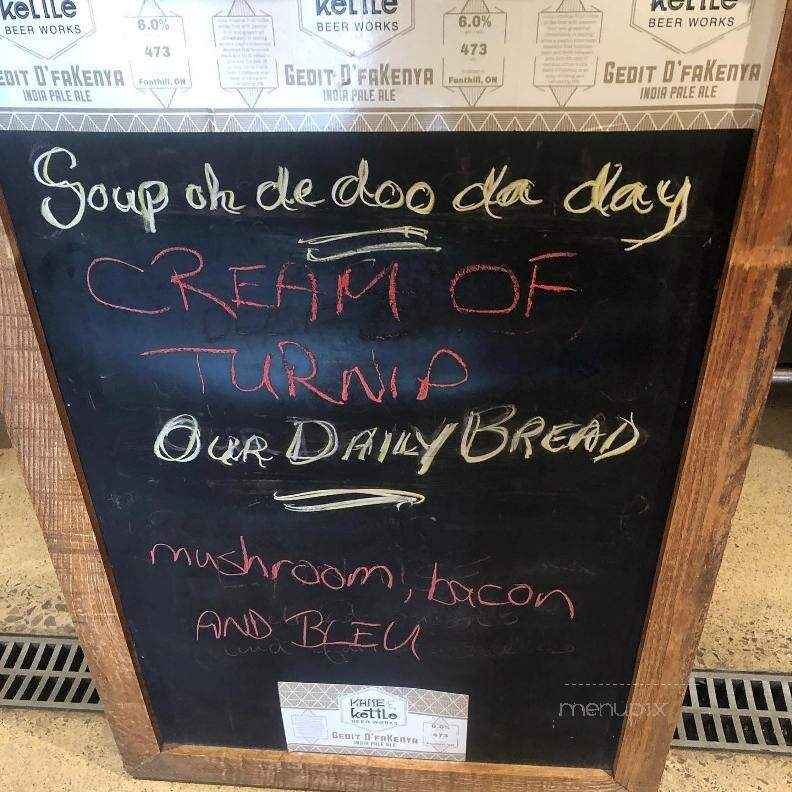 kettle kettle kettle
BEER WORKS 6.0% BEER WORKS 6.0% BEER WORKS
473 473
EDIT D'FAKENYA Fonthill, ON GEDIT D'FAKENYA Fonthill, ON GEDIT D'FAKENYA
INDIA PALE ALE INDIA PALE ALE INDIA PALE ALE
Soup oh de doo da day
CREAM OF
TURNIP
OUR DAILY BREAD
mushroom, bacon
AND BLEU
KAME &
kettle
BEER WORKS 6.0%
GEDIT D'FAKENYA 473
INDIA PALE ALE
menupix